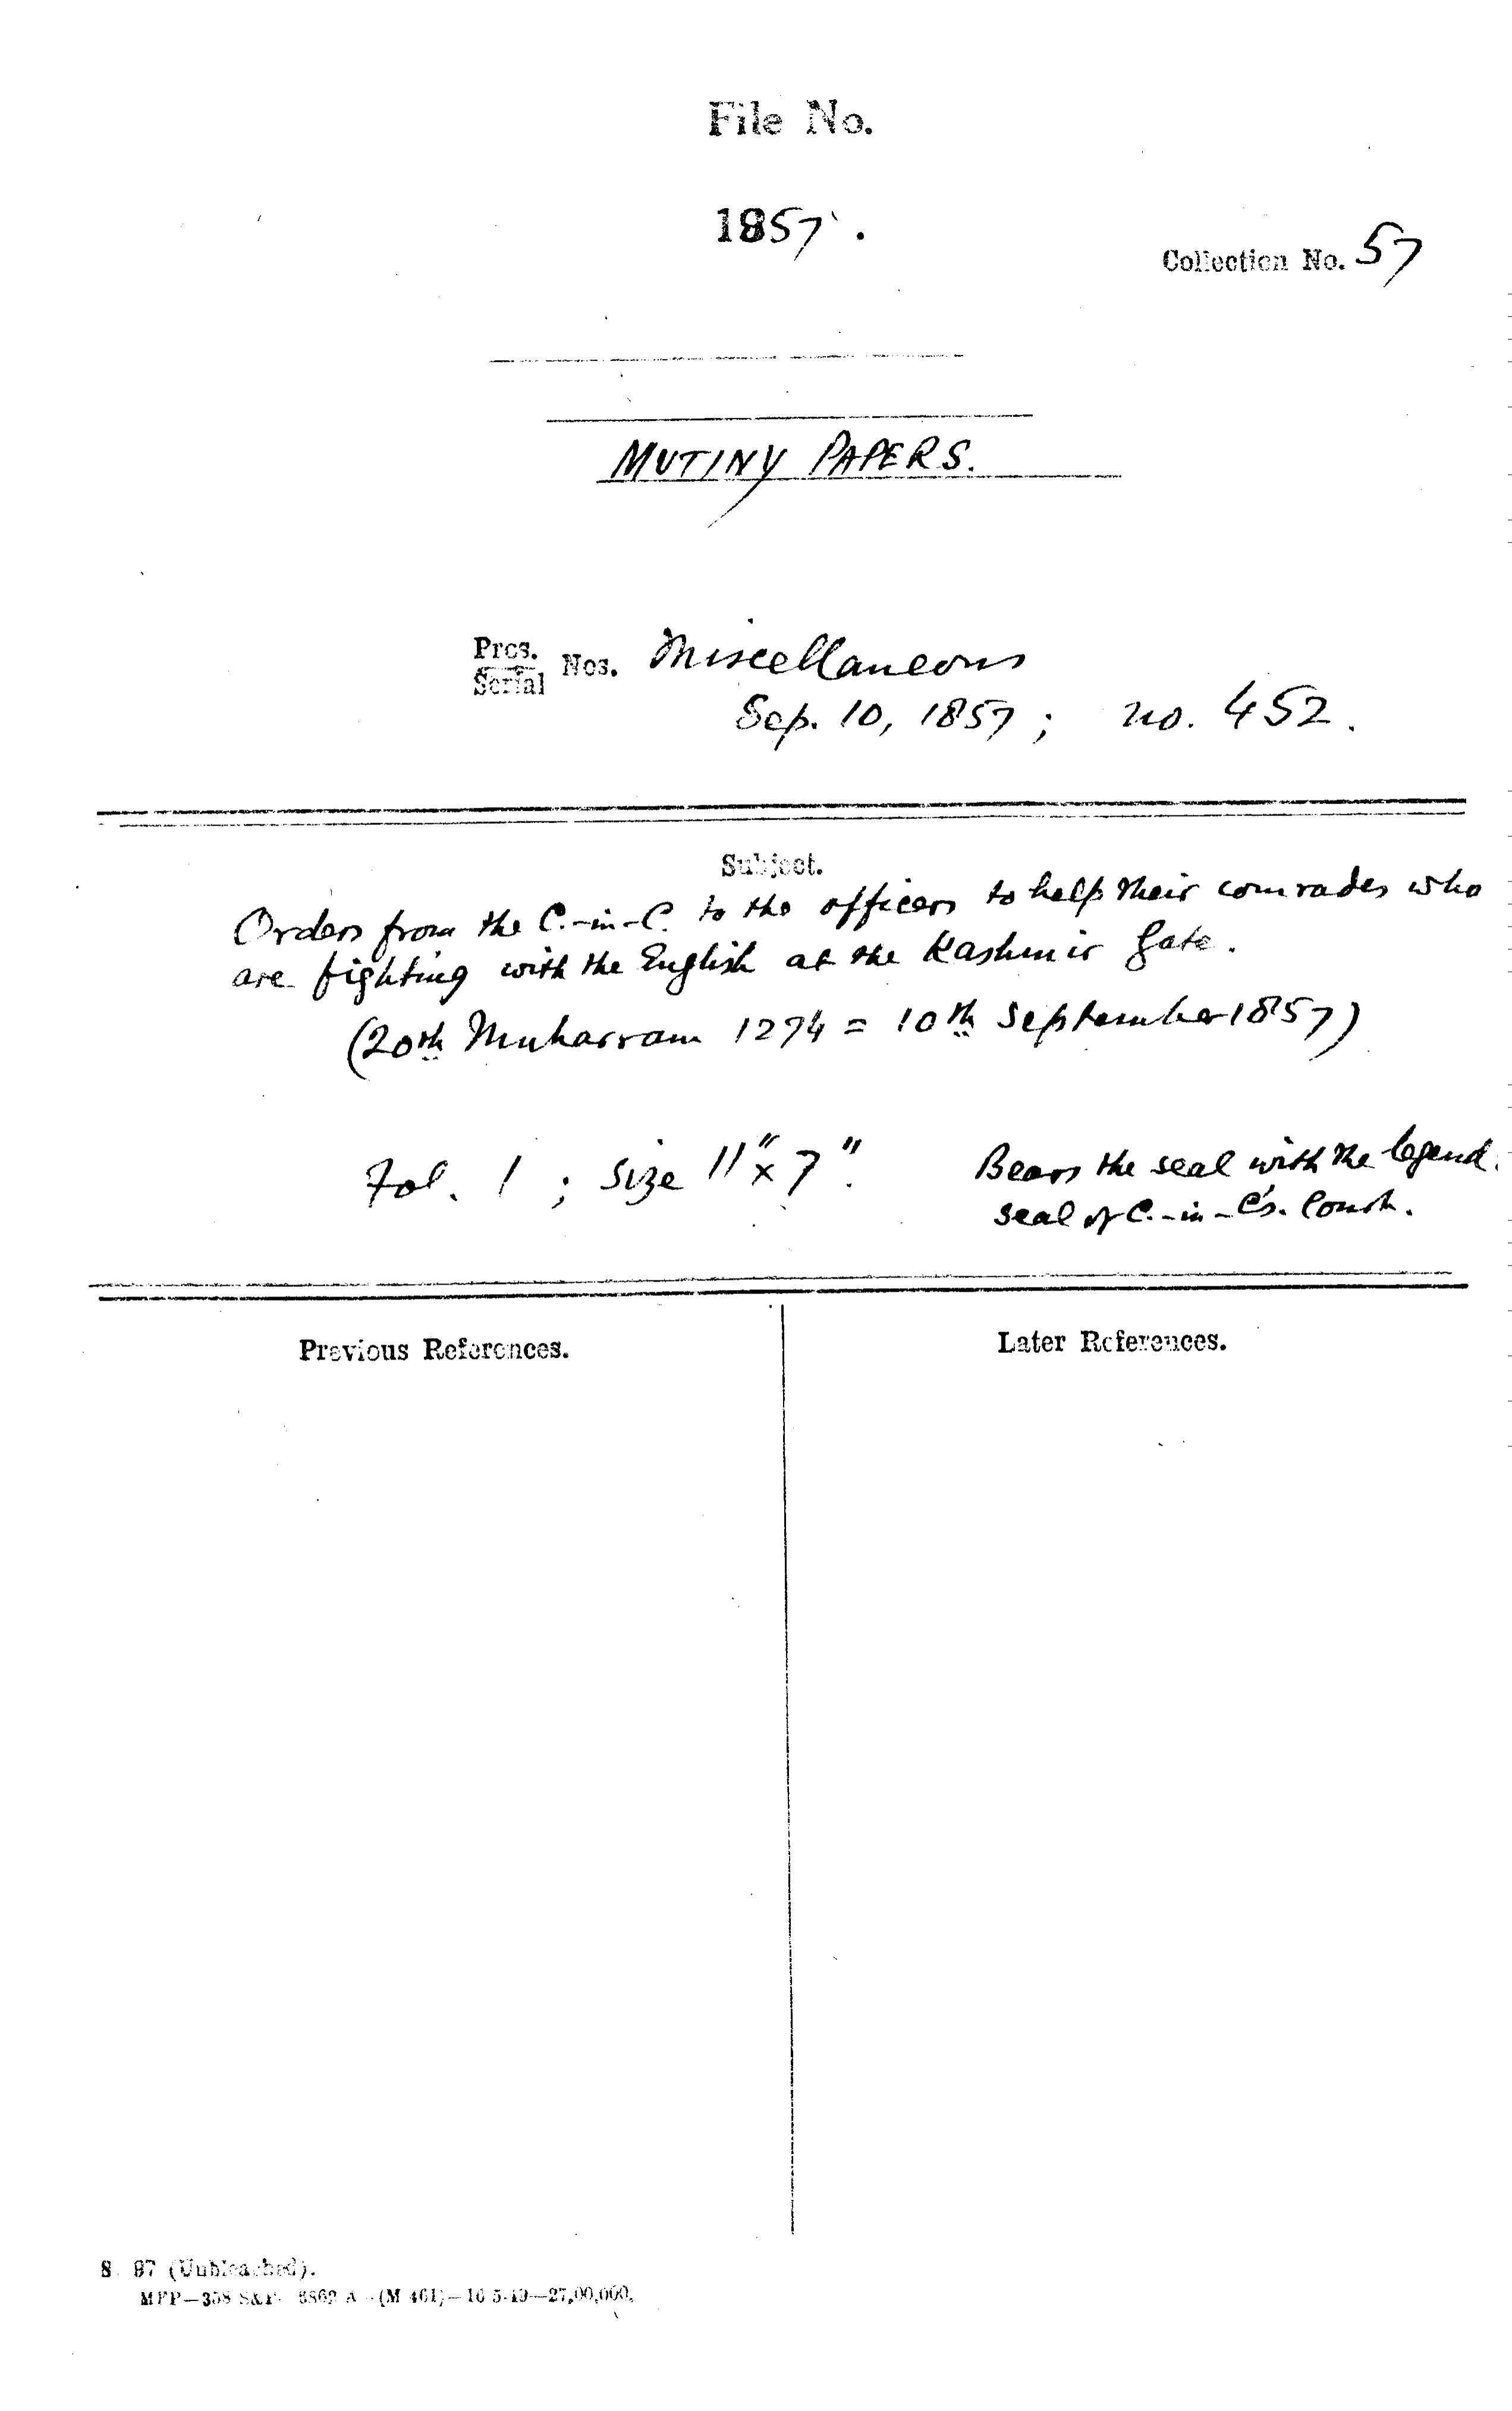 File No.
1857.
Collection No. 57
MUTINY PAPERS.
Pros. Nos. Miscellaneous
Serial
Sep. 10, 1857; no. 452.
Subject.
Orders from the C.-in-C. to the officers to help their comrades who
are fighting with the English at the Kashmir gate.
(20th Muharram 1274 = 10th September 1857)
Fol. 1 ; size 11" x 7". Bears the seal with the legend.
seal of C.-in-C's. Court.
Previous References.
Later References.
S. 97 (Unbleached).
MFP—358 S&P 6862 A—(M 461)—16-5-49—27,00,000.